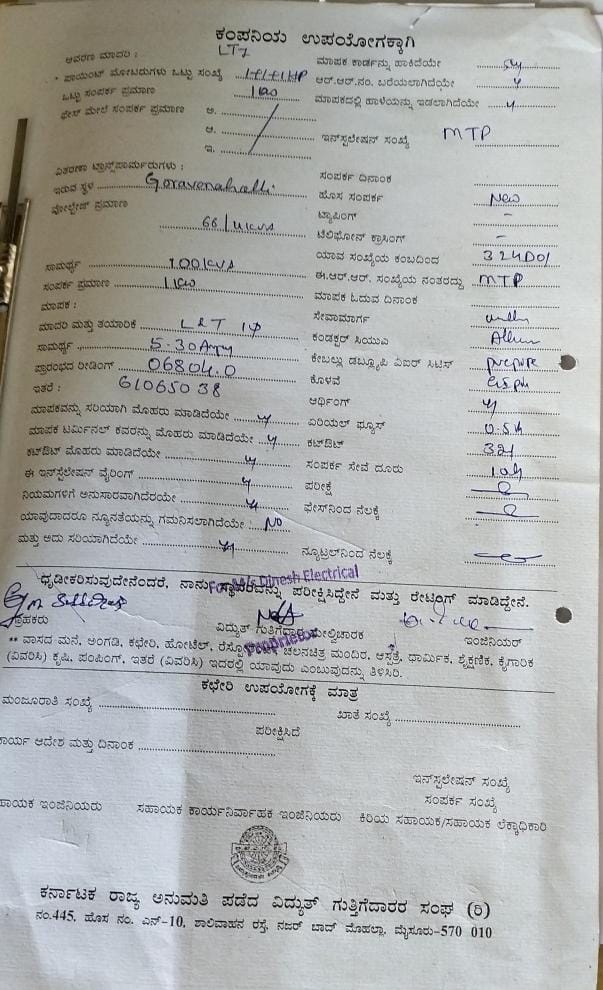 ಕಂಪನಿಯ ಉಪಯೋಗಕ್ಕಾಗಿ
ಆವರಣ ಮಾದರಿ : LT7 ಮಾಪಕ ಕಾರ್ಡನ್ನು ಹಾಕಿದೆಯೇ
ಪಾಯಿಂಟ್ ಮೋಟರುಗಳು ಒಟ್ಟು ಸಂಖ್ಯೆ ಆರ್.ಆರ್.ನಂ. ಬರೆಯಲಾಗಿದೆಯೇ y
ಒಟ್ಟು ಸಂಪರ್ಕ ಪ್ರಮಾಣ 1kw ಮಾಪಕದಲ್ಲಿ ಹಾಳೆಯನ್ನು ಇಡಲಾಗಿದೆಯೇ y
ಫೇಸ್ ಮೇಲೆ ಸಂಪರ್ಕ ಪ್ರಮಾಣ ಅ.
ಆ. ಇನ್‌ಸ್ಟಲೇಷನ್ ಸಂಖ್ಯೆ MTP
ಇ.
ವಿತರಣಾ ಟ್ರಾನ್ಸ್‌ಫಾರ್ಮರುಗಳು : ಸಂಪರ್ಕ ದಿನಾಂಕ
ಇರುವ ಸ್ಥಳ Goravenahalli ಹೊಸ ಸಂಪರ್ಕ New
ವೋಲ್ಟೇಜ್ ಪ್ರಮಾಣ ಟ್ಯಾಪಿಂಗ್ -
66/11kva ಟೆಲಿಫೋನ್ ಕ್ರಾಸಿಂಗ್ -
ಯಾವ ಸಂಖ್ಯೆಯ ಕಂಬದಿಂದ
ಸಾಮರ್ಥ್ಯ 100kva ಈ.ಆರ್.ಆರ್. ಸಂಖ್ಯೆಯ ನಂತರದ್ದು MTP
ಸಂಪರ್ಕ ಪ್ರಮಾಣ 1kw ಮಾಪಕ ಓದುವ ದಿನಾಂಕ
ಮಾಪಕ : ಸೇವಾಮಾರ್ಗ
ಮಾದರಿ ಮತ್ತು ತಯಾರಿಕೆ L&T 1φ ಕಂಡಕ್ಟರ್ ಸಿಯುಎ Allum
ಸಾಮರ್ಥ್ಯ 5-30Amp ಕೇಬಲ್ಲು ಡಬ್ಲ್ಯೂಪಿ ಏಐಆರ್ ಸಿಟಿಸ್
ಪ್ರಾರಂಭದ ರೀಡಿಂಗ್ 06804.0 ಕೊಳವೆ
ಇತರೆ : 61065038 ಆರ್ಥಿಂಗ್ y
ಮಾಪಕವನ್ನು ಸರಿಯಾಗಿ ಮೊಹರು ಮಾಡಿದೆಯೇ y ಏರಿಯಲ್ ಫ್ಯೂಸ್
ಮಾಪಕ ಟರ್ಮಿನಲ್ ಕವರನ್ನು ಮೊಹರು ಮಾಡಿದೆಯೇ y ಕಟೌಟ್ 32A
ಕಟೌಟ್ ಮೊಹರು ಮಾಡಿದೆಯೇ y ಸಂಪರ್ಕ ಸೇವೆ ದೂರು
ಈ ಇನ್‌ಸ್ಟಲೇಷನ್ ವೈರಿಂಗ್ y ಪರೀಕ್ಷೆ
ನಿಯಮಗಳಿಗೆ ಅನುಸಾರವಾಗಿದೆರಯೇ y ಫೇಸ್‌ನಿಂದ ನೆಲಕ್ಕೆ
ಯಾವುದಾದರೂ ನ್ಯೂನತೆಯನ್ನು ಗಮನಿಸಲಾಗಿದೆಯೇ : No
ಮತ್ತು ಅದು ಸರಿಯಾಗಿದೆಯೇ y ನ್ಯೂಟ್ರಲ್‌ನಿಂದ ನೆಲಕ್ಕೆ
ಧೃಡೀಕರಿಸುವುದೇನೆಂದರೆ, ನಾನು ಸ್ಥಾವರವನ್ನು ಪರೀಕ್ಷಿಸಿದ್ದೇನೆ ಮತ್ತು ರೇಟಿಂಗ್ ಮಾಡಿದ್ದೇನೆ.
For M/s Dinesh Electrical
ಗ್ರಾಹಕರು ವಿದ್ಯುತ್ ಗುತ್ತಿಗೆದಾರ ಮೇಲ್ವಿಚಾರಕ ಇಂಜಿನಿಯರ್
Proprietor
** ವಾಸದ ಮನೆ, ಅಂಗಡಿ, ಕಛೇರಿ, ಹೋಟೆಲ್, ರೆಸ್ಟೋ ಚಲನಚಿತ್ರ ಮಂದಿರ, ಆಸ್ಪತ್ರೆ, ಧಾರ್ಮಿಕ, ಶೈಕ್ಷಣಿಕ, ಕೈಗಾರಿಕ
(ವಿವರಿಸಿ) ಕೃಷಿ, ಪಂಪಿಂಗ್, ಇತರೆ (ವಿವರಿಸಿ) ಇದರಲ್ಲಿ ಯಾವುದು ಎಂಬುವುದನ್ನು ತಿಳಿಸಿರಿ.
ಕಛೇರಿ ಉಪಯೋಗಕ್ಕೆ ಮಾತ್ರ
ಮಂಜೂರಾತಿ ಸಂಖ್ಯೆ ಖಾತೆ ಸಂಖ್ಯೆ
ಪರೀಕ್ಷಿಸಿದೆ
ಕಾರ್ಯ ಆದೇಶ ಮತ್ತು ದಿನಾಂಕ
ಇನ್‌ಸ್ಟಲೇಷನ್ ಸಂಖ್ಯೆ
ಸಂಪರ್ಕ ಸಂಖ್ಯೆ
ಹಾಯಕ ಇಂಜಿನಿಯರು ಸಹಾಯಕ ಕಾರ್ಯನಿರ್ವಾಹಕ ಇಂಜಿನಿಯರು ಕಿರಿಯ ಸಹಾಯಕ/ಸಹಾಯಕ ಲೆಕ್ಕಾಧಿಕಾರಿ
ಕರ್ನಾಟಕ ರಾಜ್ಯ ಅನುಮತಿ ಪಡೆದ ವಿದ್ಯುತ್ ಗುತ್ತಿಗೆದಾರರ ಸಂಘ (ರಿ)
ನಂ.445, ಹೊಸ ನಂ. ಎನ್-10, ಶಾಲಿವಾಹನ ರಸ್ತೆ, ನಜರ್ ಬಾದ್ ಮೊಹಲ್ಲಾ, ಮೈಸೂರು-570 010